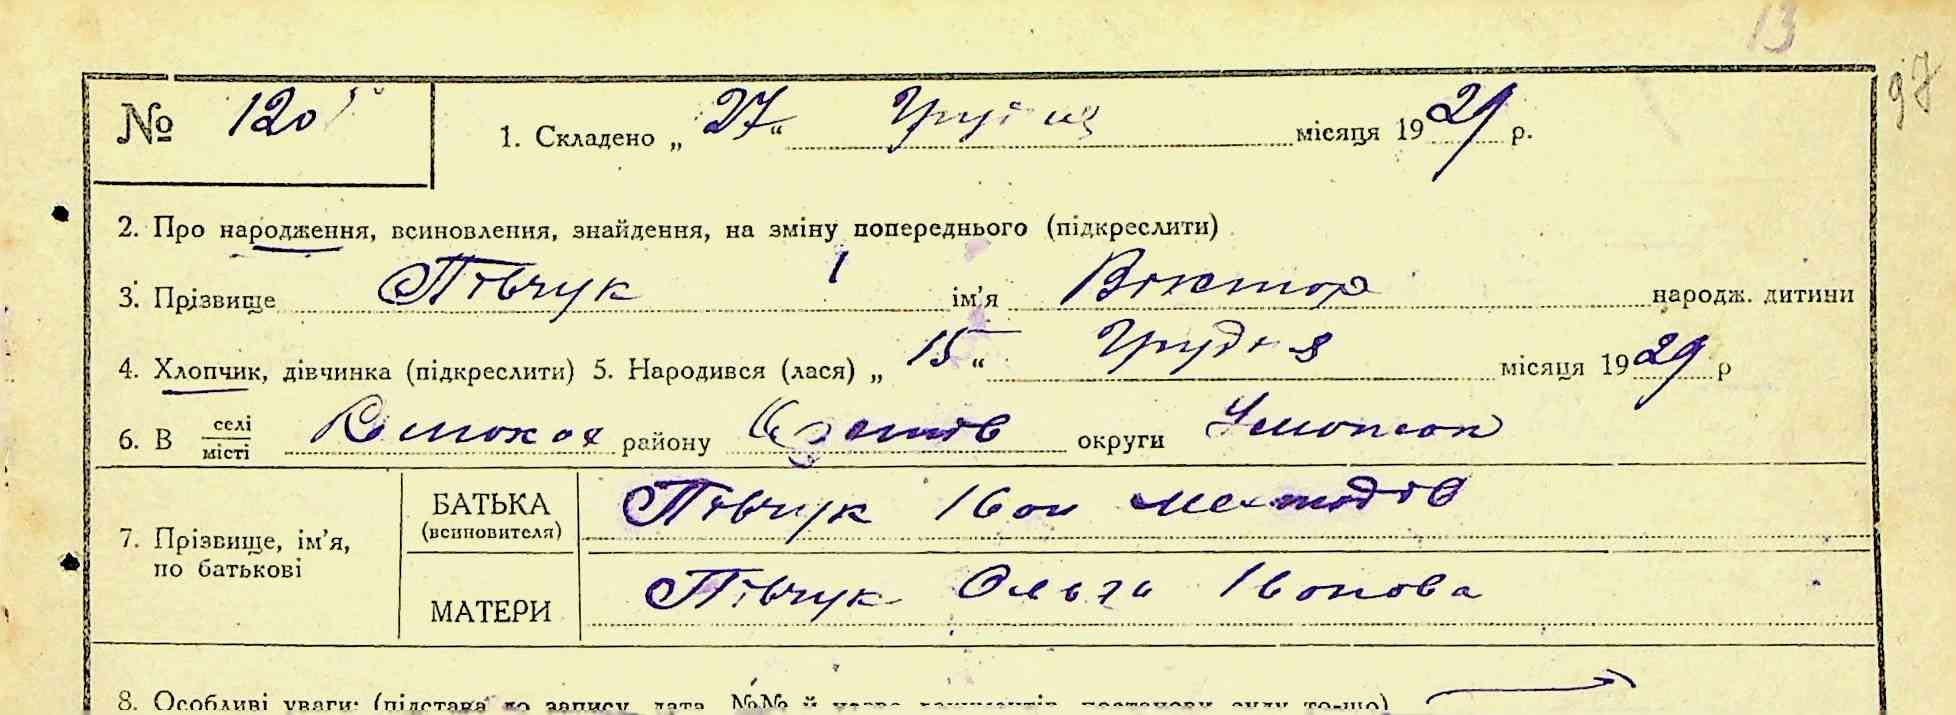 13
97
№ 120
1. Складено „ 27 “ Грудня місяця 1929 р.
2. Про народження, всиновлення, знайдення, на зміну попереднього (підкреслити)
3. Прізвище Півчук ім’я Віктор народж. дитини
4. Хлопчик, дівчинка (підкреслити) 5. Народився (лася) „ 15 “ Грудня місяця 1929 р
6. В селі місті району округи
7. Прізвище, ім’я, по батькові
БАТЬКА (всиновителя) Півчук Іван
МАТЕРИ Півчук Ольга Іванова
8. Особливі уваги: (підстава до запису, дата, №№ й назва документів, постанови суду то-що)